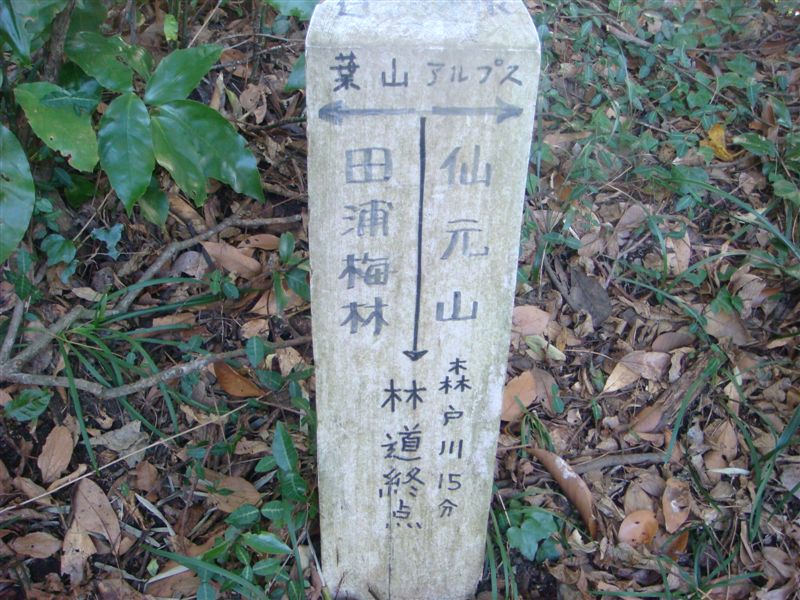 葉山アルプス
田浦梅林
仙元山
林道終点
森戸川15分